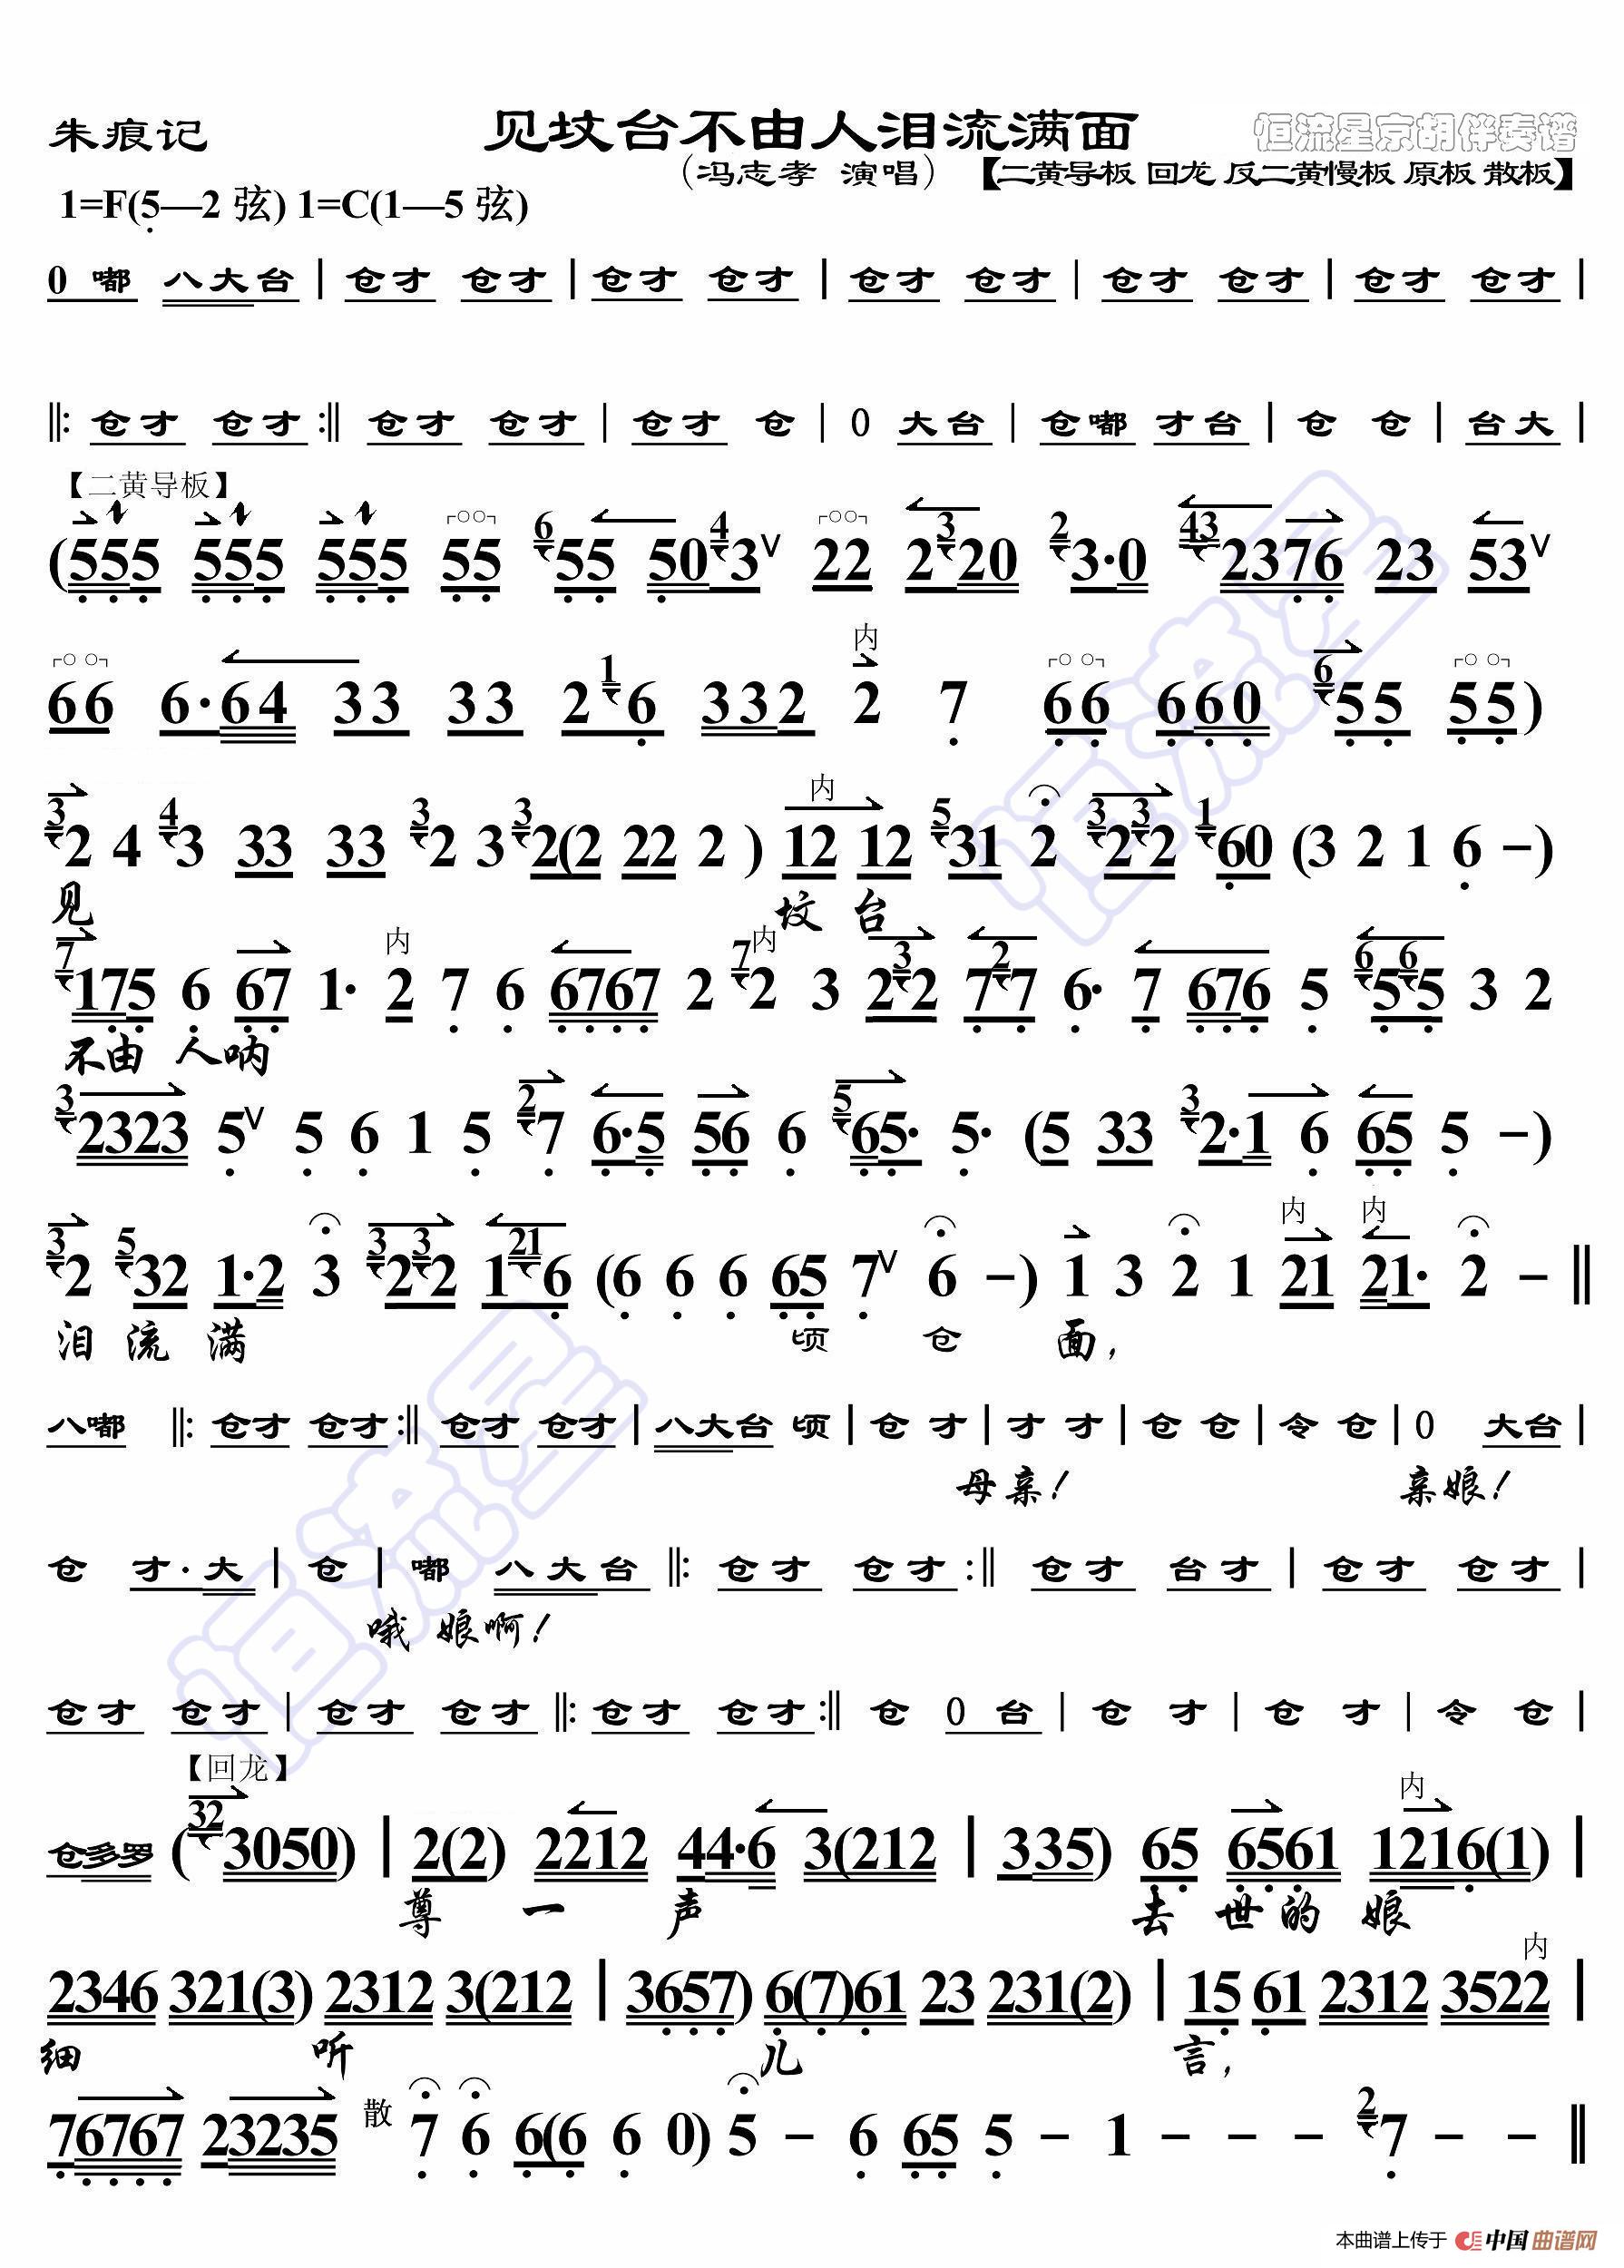 朱痕记
见坟台不由人泪流满面
恒流星京胡伴奏谱
（冯志孝 演唱）
【二黄导板 回龙 反二黄慢板 原板 散板】
1=F(5—2 弦) 1=C(1—5 弦)
0 嘟 八大台 | 仓才 仓才 | 仓才 仓才 | 仓才 仓才 | 仓才 仓才 | 仓才 仓才 |
‖: 仓才 仓才 :‖ 仓才 仓才 | 仓才 仓 | 0 大台 | 仓嘟 才台 | 仓 仓 | 台大 |
【二黄导板】
(555 555 555 55 6 55 50 4 3 V 22 2 3 20 2 3·0 43 2376 23 53 V
内
66 6·64 33 33 2 1 6 332 2 7 66 660 6 55 55)
内
3 2 4 4 3 33 33 3 2 3 3 2(2 22 2 ) 12 12 5 31 2 3 2 3 2 1 60 (3 2 1 6 -)
见 坟 台
内 内
7 175 6 67 1· 2 7 6 6767 2 7 2 3 2 3 2 7 2 7 6· 7 676 5 6 5 6 5 3 2
不由 人呐
3 2323 5 V 5 6 1 5 2 7 6·5 56 6 5 65· 5· (5 33 3 2·1 6 65 5 -)
内 内
3 2 5 32 1·2 3 3 2 3 2 1 21 6 (6 6 6 65 7 V 6 -) 1 3 2 1 21 21· 2 - ‖
泪 流 满 顷 仓 面，
八嘟 ‖: 仓才 仓才 :‖ 仓才 仓才 | 八大台 顷 | 仓 才 | 才 才 | 仓 仓 | 令 仓 | 0 大台 |
母亲！ 亲娘！
仓 才·大 | 仓 | 嘟 八大台 ‖: 仓才 仓才 :‖ 仓才 台才 | 仓才 仓才 |
哦 娘啊！
仓才 仓才 | 仓才 仓才 ‖: 仓才 仓才 :‖ 仓 0 台 | 仓 才 | 仓 才 | 令 仓 |
【回龙】
内
仓多罗 ( 32 3050) | 2(2) 2212 44·6 3(212 | 335) 65 6561 1216(1) |
尊 一 声 去 世的 娘
内
2346 321(3) 2312 3(212 | 3657) 6(7)61 23 231(2) | 15 61 2312 3522 |
细 听 儿 言，
76767 23235 散 7 6 6(6 6 0) 5 - 6 65 5 - 1 - - - 2 7 - - ‖
恒流星
恒流星
本曲谱上传于 中国曲谱网